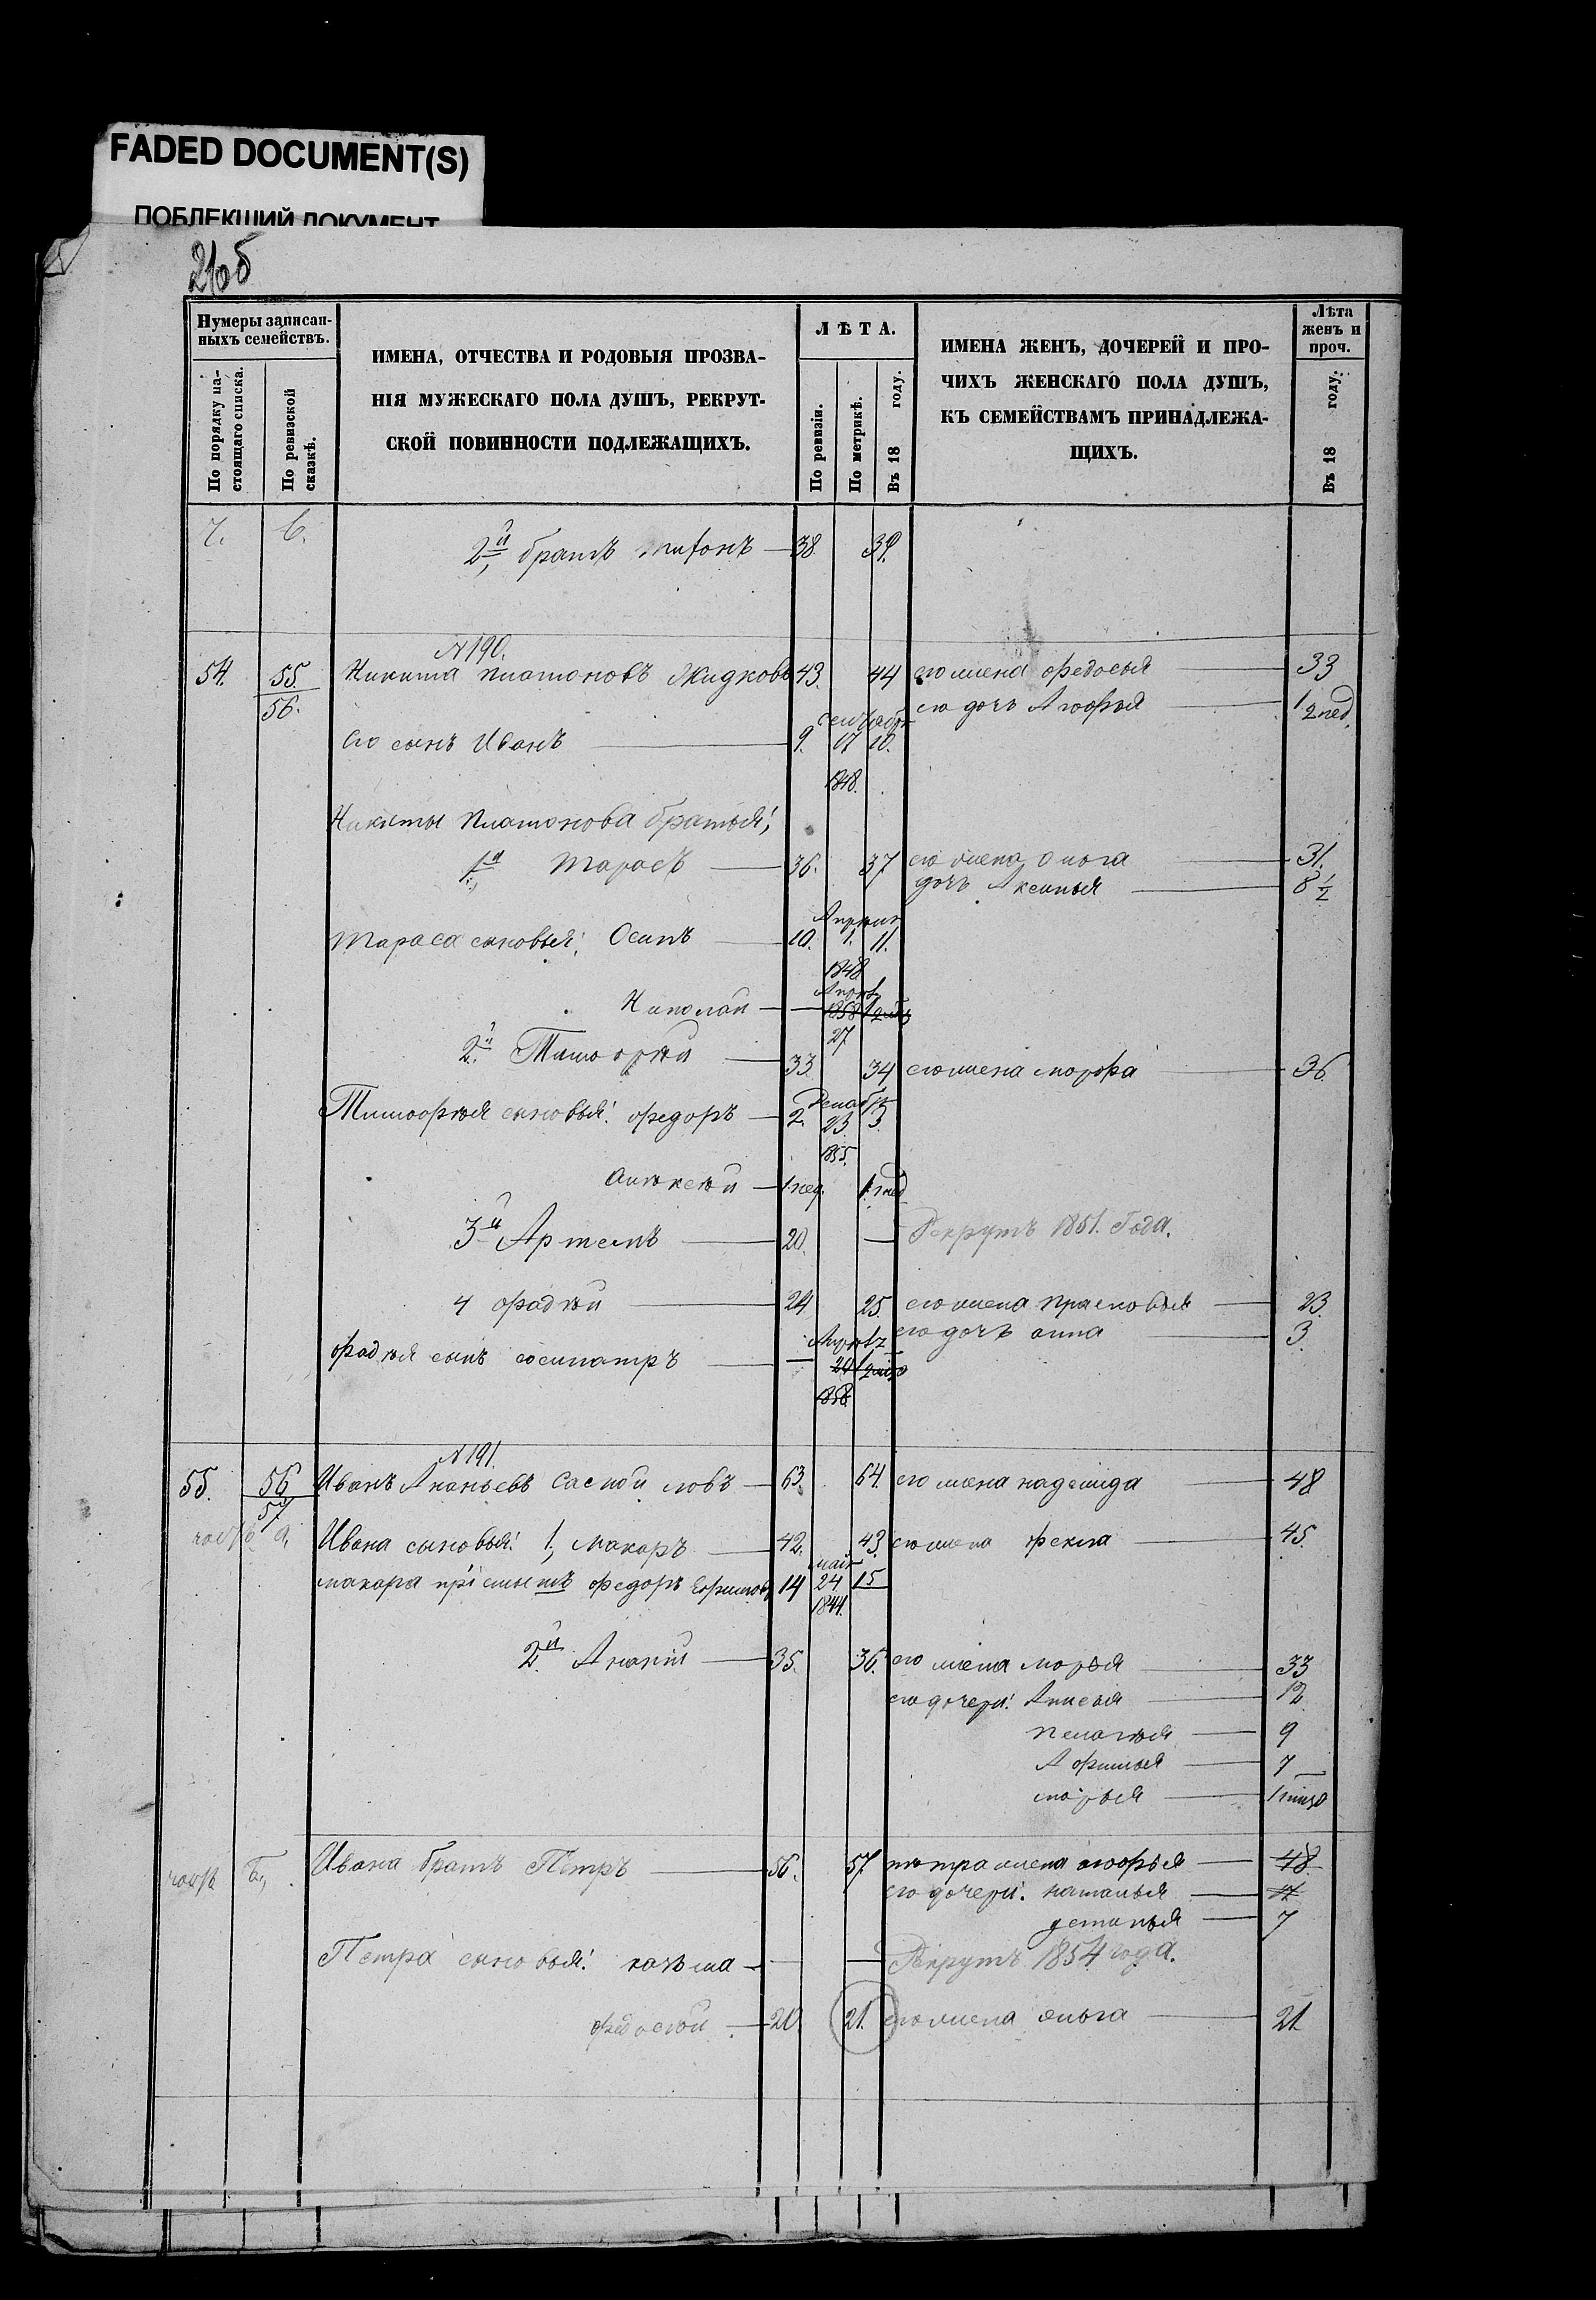 FADED DOCUMENT(S)
ПОБЛЕКШИЙ ДОКУМЕНТ
Нумеры записан-
ныхъ семействъ.
По порядку на-
стоящаго списка.
По ревизской
сказкѣ.
ИМЕНА, ОТЧЕСТВА И РОДОВЫЯ ПРОЗВА-
НІЯ МУЖЕСКАГО ПОЛА ДУШЪ, РЕКРУТ-
СКОЙ ПОВИННОСТИ ПОДЛЕЖАЩИХЪ.
ЛѢТА.
По ревизіи.
По метрикѣ.
Въ 18 году.
ИМЕНА ЖЕНЪ, ДОЧЕРЕЙ И ПРО-
ЧИХЪ ЖЕНСКАГО ПОЛА ДУШЪ,
КЪ СЕМЕЙСТВАМЪ ПРИНАДЛЕЖА-
ЩИХЪ.
Лѣта
женъ и
проч.
Въ 18 году.
2й братъ 38. 39.
N 190.
54. 55. Никита Платоновъ Жидковъ 43. 44 его жена Федосья 33
56. его дочь 1/2 нед.
его сынъ Иванъ 9. 17 10.
1848.
Никиты Платонова братья:
1й Тарасъ 36. 37 его жена Ольга 31.
дочь Аксинья 8 1/2
Апреля
Тараса сыновья: Осипъ 10. 1. 11.
1848
Николай 1858
27
2й Тимофѣй 33. 34 его жена Марфа 36.
Декабр
Тимофѣя сыновья: Федоръ 2. 23 3.
1855.
Алѣксѣй 1 нед. 1 нед
3й Артемъ 20. Рекрутъ 1851. Года.
4 Фадѣй 24 25. его жена Прасковья 23.
его дочь Анна 3.
Фадѣя сынъ Сосипатръ 20
1858.
N 191.
55. 56 Иванъ Ананьевъ 63. 64. его жена Надежда 48
57
а. Ивана сыновья: 1. Макаръ 42. 43. его жена Фекла 45.
мая
Макара пріемышъ Федоръ Ефимовъ 14 24 15
1844.
2й Ананій 35. 36. его жена Марья 33
его дочери: 12
Пелагѣя 9
Афимья 7
Марья
Б. Ивана братъ Пётръ 56. 57. Пѣтра жена 48.
его дочери: Наталья
Устинья 7
Петра сыновья: Козьма Рекрутъ 1854 года.
20. 21. его жена Ольга 21